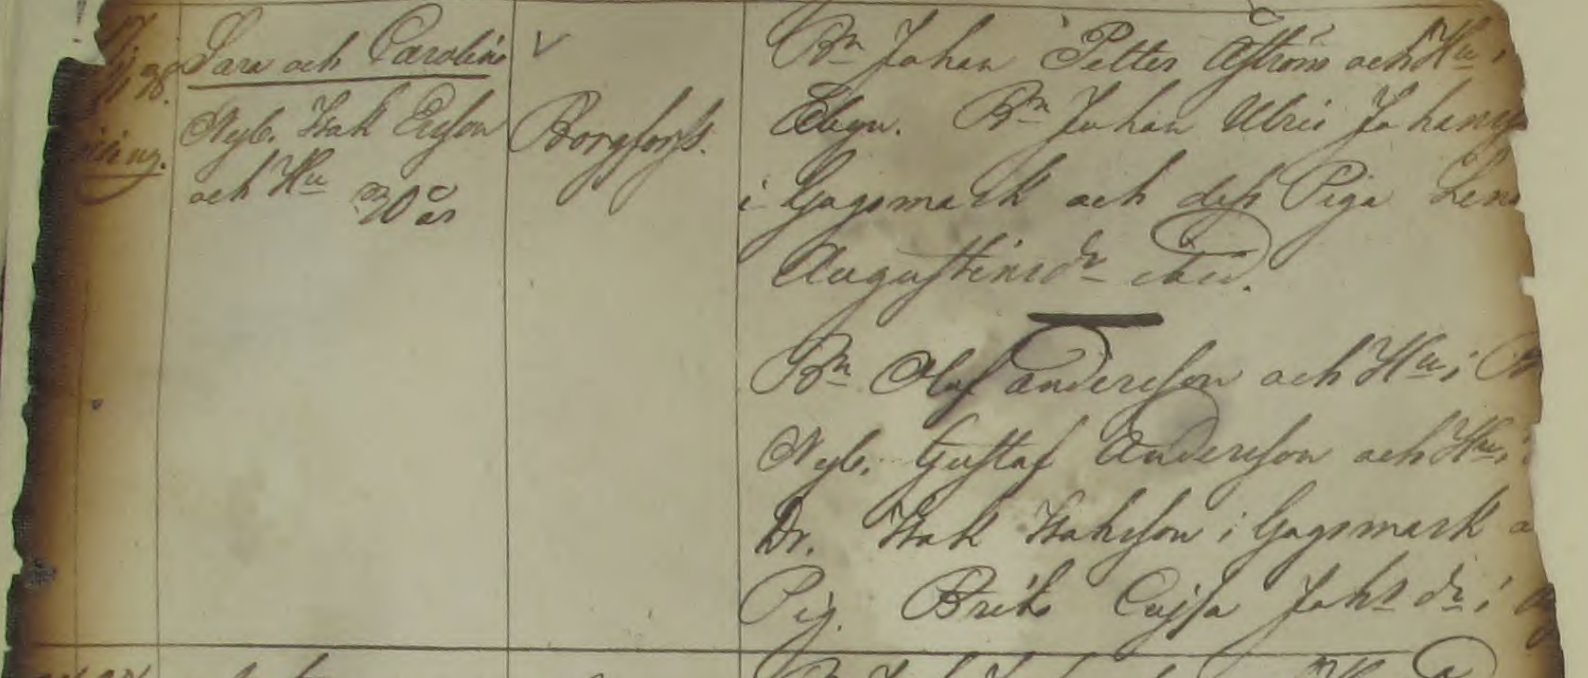 Sara och Carolina
Nyb. Isak Ersson
och Hu 30 år
Borgforss.
Bn Johan Petter Åström och Hu i
Ebgn. Bn Johan Ulric Johans
i Gagsmark och dess Piga Lena
Augustinsdr ibid.
Bn Olof Andersson och Hu i
Nyb. Gustaf Andersson och Hu i
Dr. Isak Isaksson i Gagsmark
Pig. Brita Cajsa Johsdr i